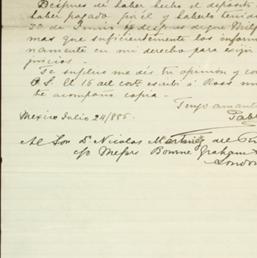 Despues de haber hecho el deposito
haber pagado por el y haberlo tenido
30 de Junio y despues de que
mas que suficientemente los inform
namente en mi derecho para exijir
juicios.
Te suplico me des tu opinion y con
P.S. El 15 del corte escribi á Ross
te acompaño copia.
Tengo amanti
Mexico Julio 24/885.
Pabl
Al Sor. D. Nicolas Martinez del
c/o Messrs Bourne Graham
London